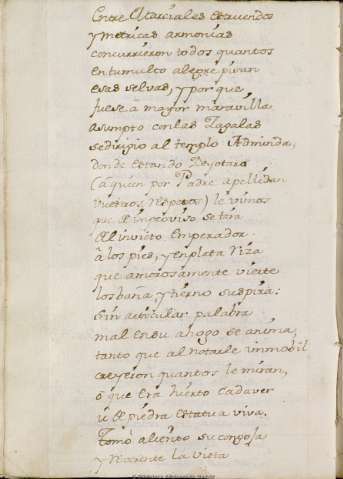 Entre Marciales estruendos
y metricas armonias
concurrieron todos quantos
en tumulto alegre pisan
esas selvas, y por que
fuese â mayor maravilla
asumpto con las Zagalas
se dirigio al templo Admirada,
donde estando Deyotaro
(a quien por Padre apellidan
vuestros respetos) le vimos
que de improviso se tira
del invicto Emperador
â los pies, y en plata riza
que amorosamente vierte
los baña y tierno suspira:
sin articular palabra
mal en su ahogo se anima,
tanto que al notarle immobil
creyeron quantos le miran,
ô que era hierto cadaver
û de piedra estatua viva.
Tomó aliento su congoja
y la vista